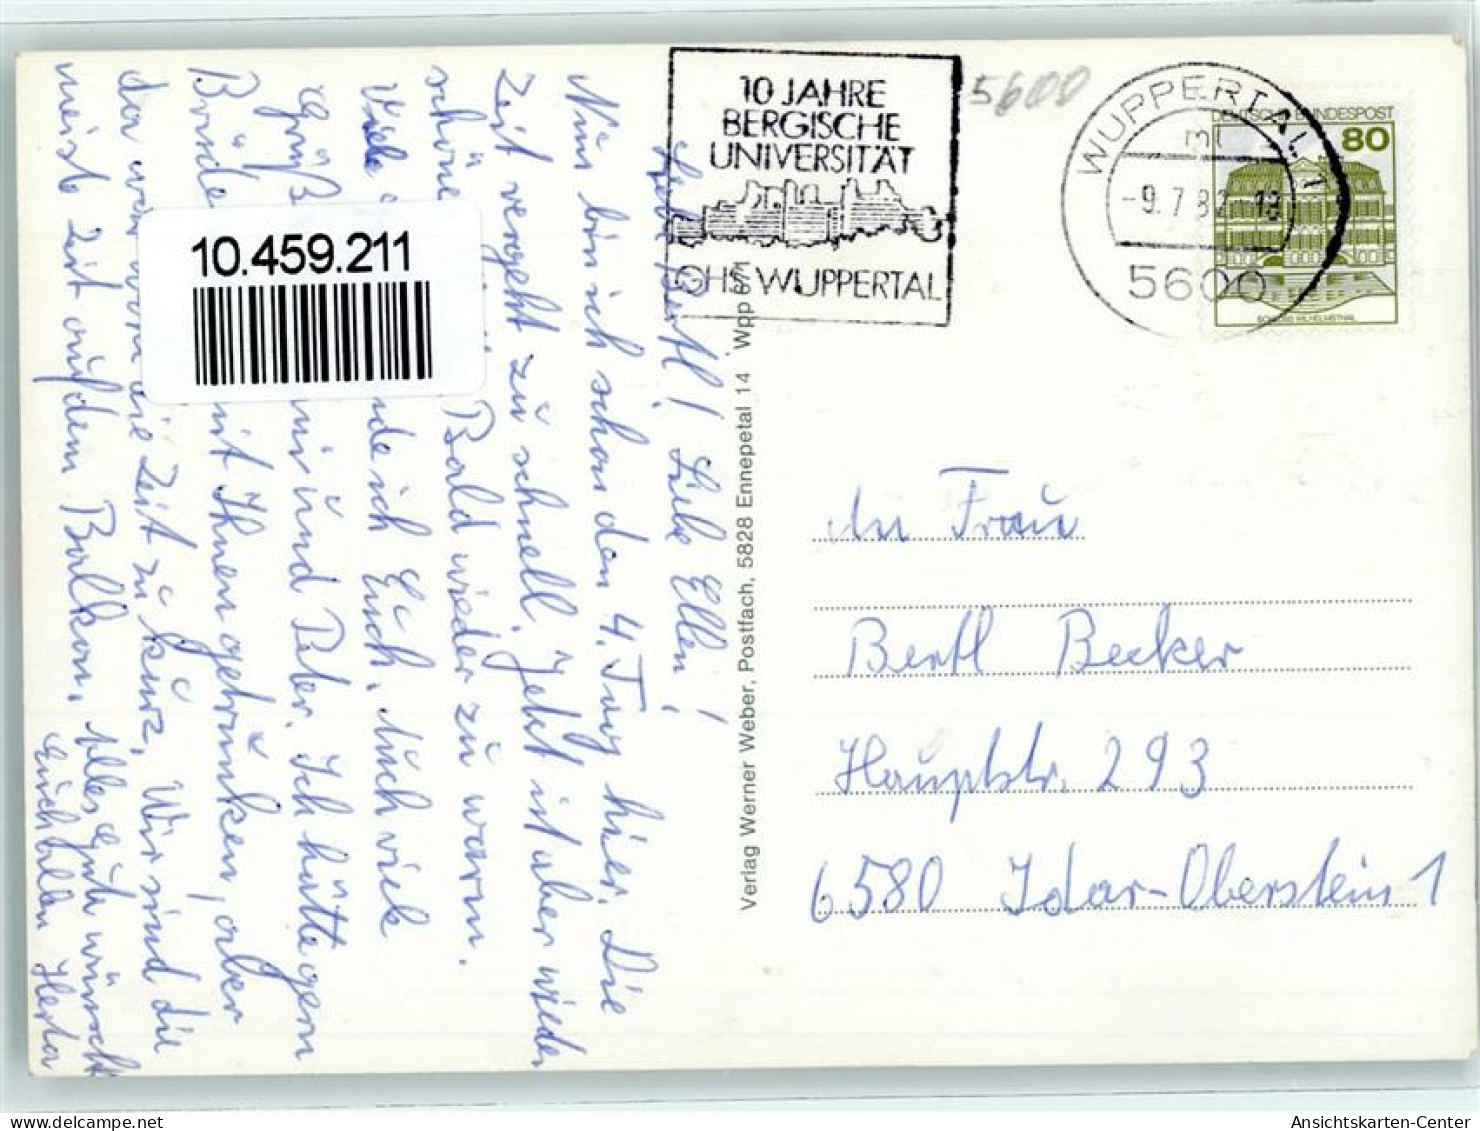 10 JAHRE
BERGISCHE
UNIVERSITÄT
GHS WUPPERTAL
5600
WUPPERTAL 1
ml
-9.7.82-18
5600
DEUTSCHE BUNDESPOST
80
SCHLOSS WILHELMSTHAL
10.459.211
Liebe Bertl! Liebe Ellen!
Nun bin ich schon den 4. Tag hier. Die
Zeit vergeht zu schnell. Jetzt ist aber wieder
schöne Bald wieder zu warm.
Viele de ich Euch. Auch viele
Grüß mir und Peter. Ich hätte gern
Brüde mit Ihnen getrunken, aber
da war die Zeit zu kurz. Wir sind die
meiste Zeit auf dem Balkon. Alles Gute wünscht
Euch allen Herta
Verlag Werner Weber, Postfach, 5828 Ennepetal 14 Wpp 6/1
An Frau
Bertl Becker
Hauptstr. 293
6580 Idar-Oberstein 1
Ansichtskarten-Center